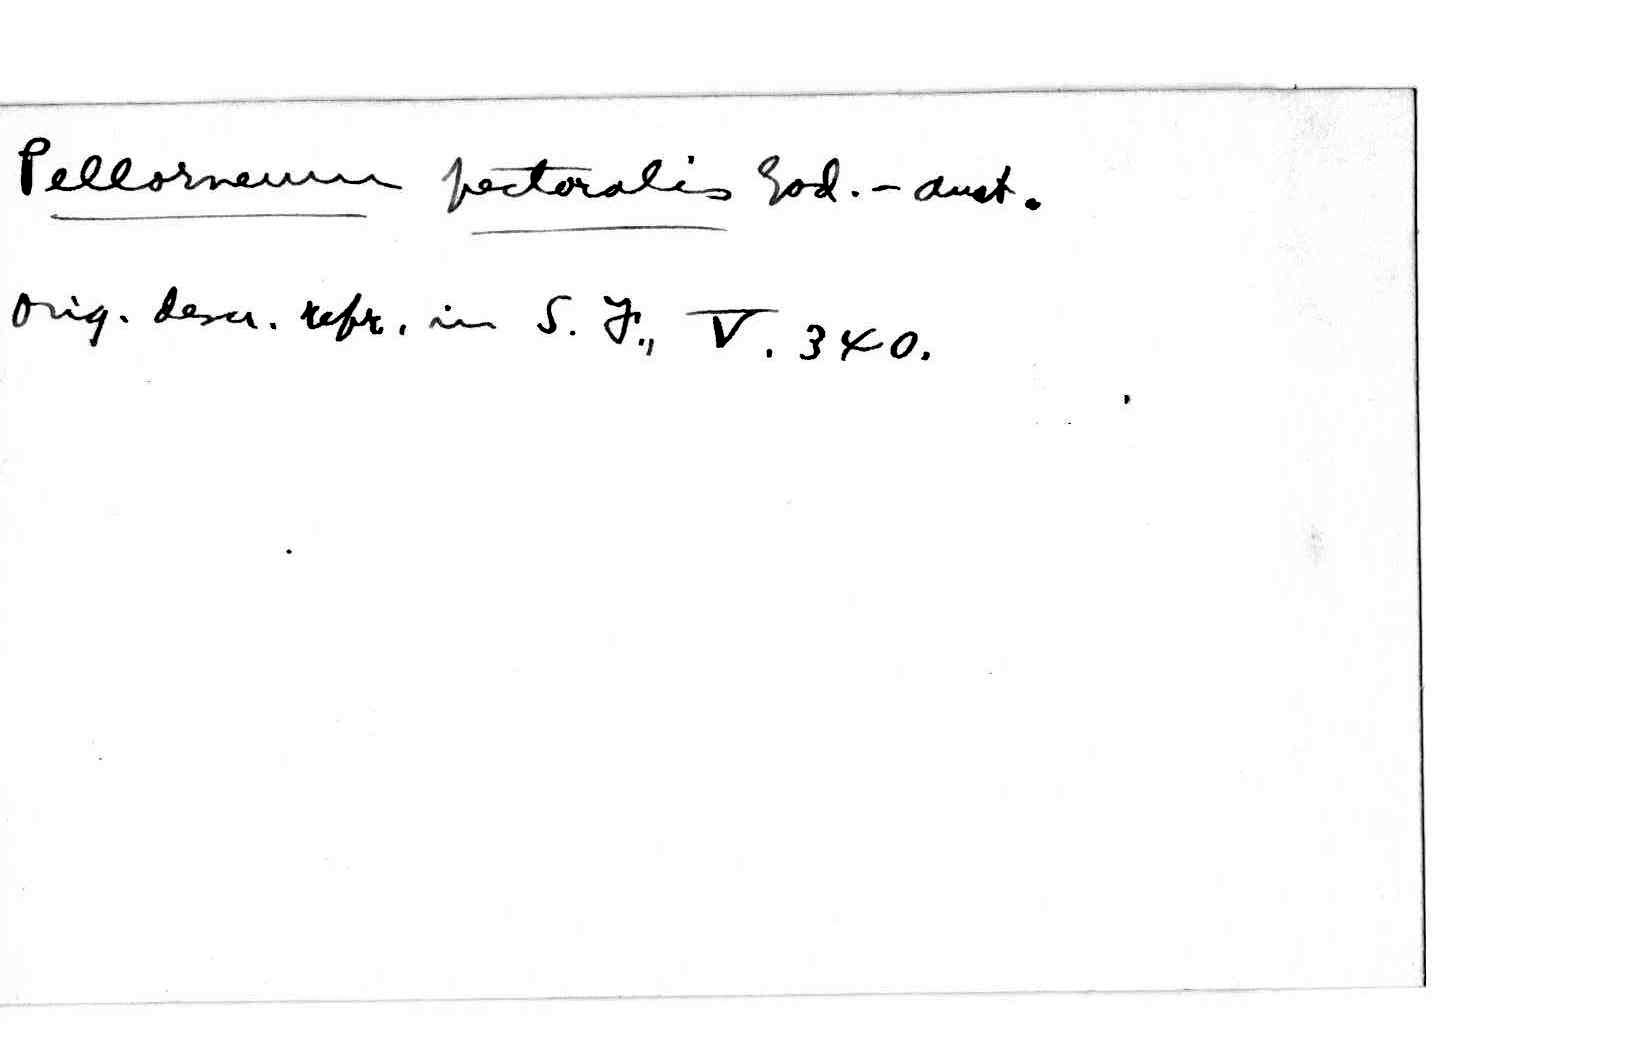 Pellorneum pectoralis God.-Aust.
Orig. descr. repr. in S. F., V. 340.